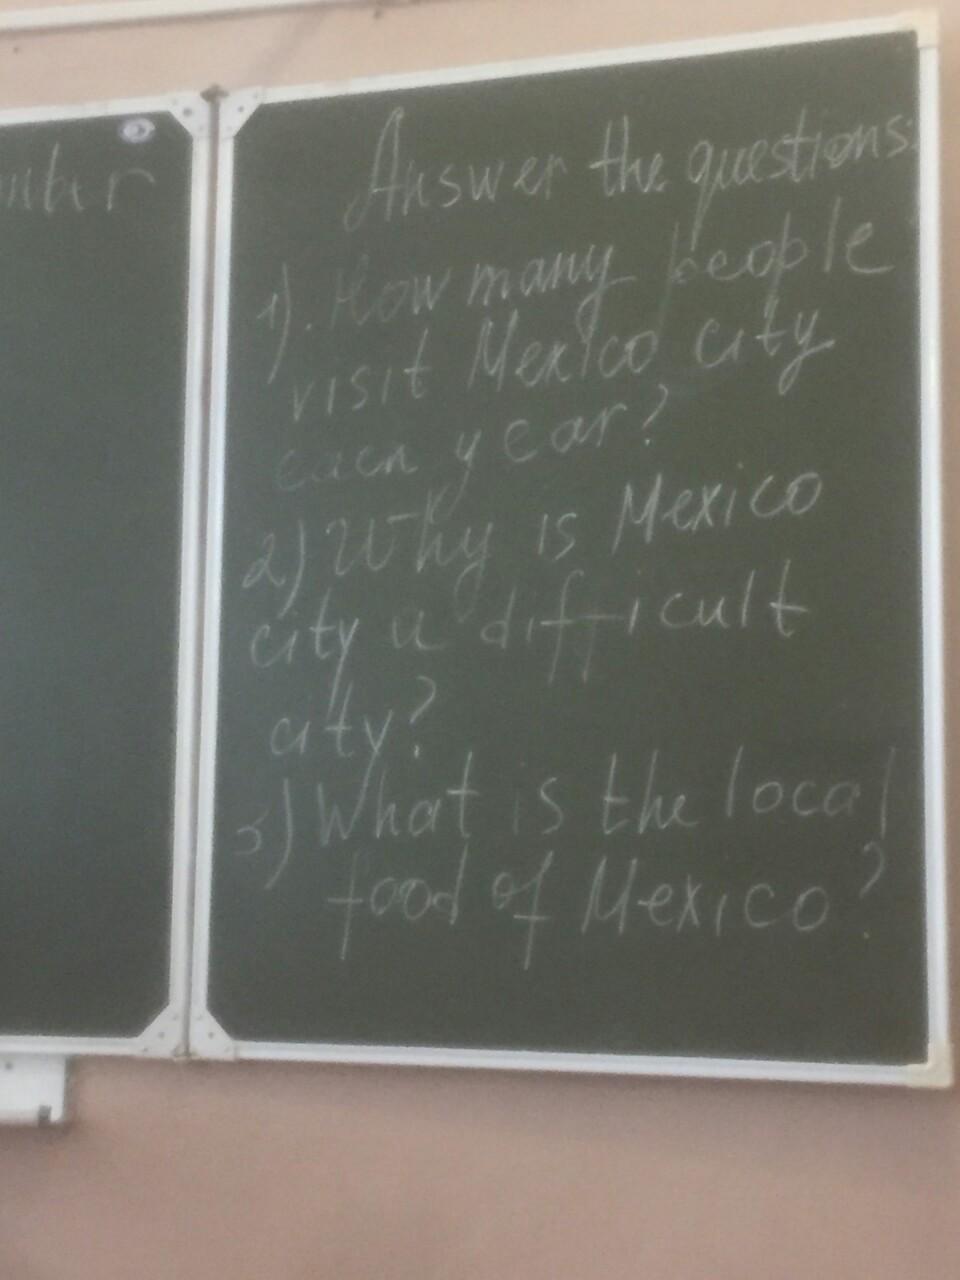 Answer the questions:
1). How many people
visit Mexico city
each year?
2) Why is Mexico
city a difficult
city?
3) What is the local
food of Mexico?